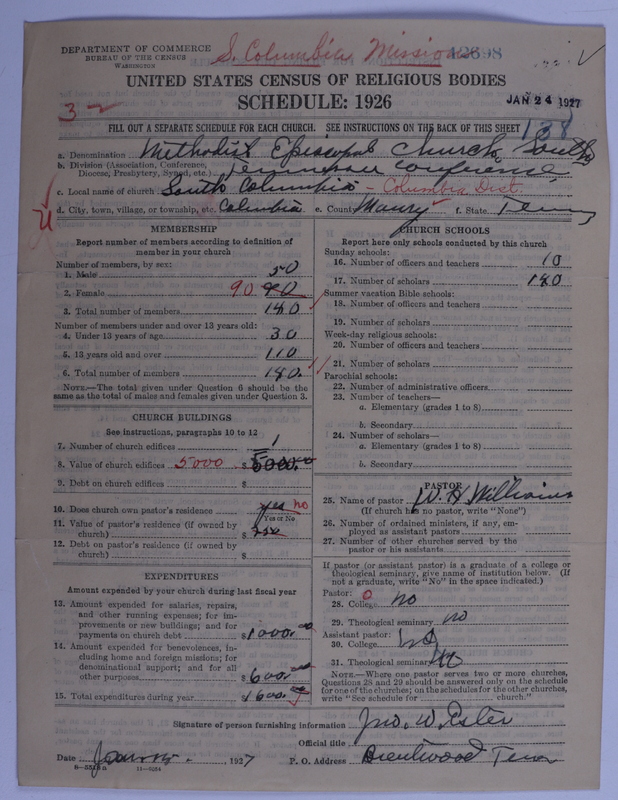 DEPARTMENT OF COMMERCE
BUREAU OF THE CENSUS
WASHINGTON
S. Columbia Mission 12698
UNITED STATES CENSUS OF RELIGIOUS BODIES
SCHEDULE: 1926
JAN 24 1927
FILL OUT A SEPARATE SCHEDULE FOR EACH CHURCH. SEE INSTRUCTIONS ON THE BACK OF THIS SHEET
138
a. Denomination Methodist Episcopal Church, South
b. Division (Association, Conference, Diocese, Presbytery, Synod, etc.) Tennessee Conference
c. Local name of church South Columbia - Columbia Dist.
d. City, town, village, or township, etc. Columbia e. County Maury f. State Tenn
MEMBERSHIP
Report number of members according to definition of
member in your church
Number of members, by sex:
1. Male 50
2. Female 90 90
3. Total number of members 140
Number of members under and over 13 years old:
4. Under 13 years of age 30
5. 13 years old and over 110
6. Total number of members 140
NOTE.—The total given under Question 6 should be the
same as the total of males and females given under Question 3.
CHURCH BUILDINGS
See instructions, paragraphs 10 to 12
7. Number of church edifices 1
8. Value of church edifices 5000 $ 5000.00
9. Debt on church edifices $
10. Does church own pastor's residence yes no
Yes or No
11. Value of pastor's residence (if owned by
church) $
12. Debt on pastor's residence (if owned by
church) $
EXPENDITURES
Amount expended by your church during last fiscal year
13. Amount expended for salaries, repairs,
and other running expenses; for im-
provements or new buildings; and for
payments on church debt $1000.00
14. Amount expended for benevolences, in-
cluding home and foreign missions; for
denominational support; and for all
other purposes $600.00
15. Total expenditures during year 1600.00
CHURCH SCHOOLS
Report here only schools conducted by this church
Sunday schools:
16. Number of officers and teachers 10
17. Number of scholars 180
Summer vacation Bible schools:
18. Number of officers and teachers
19. Number of scholars
Week-day religious schools:
20. Number of officers and teachers
21. Number of scholars
Parochial schools:
22. Number of administrative officers
23. Number of teachers—
a. Elementary (grades 1 to 8)
b. Secondary
24. Number of scholars—
a. Elementary (grades 1 to 8)
b. Secondary
PASTOR
25. Name of pastor W. H. Williams
(If church has no pastor, write "None")
26. Number of ordained ministers, if any, em-
ployed as assistant pastors
27. Number of other churches served by the
pastor or his assistants
If pastor (or assistant pastor) is a graduate of a college or
theological seminary, give name of institution below. (If
not a graduate, write "No" in the space indicated.)
Pastor:
28. College no
29. Theological seminary no
Assistant pastor:
30. College no
31. Theological seminary no
NOTE.—Where one pastor serves two or more churches,
Questions 28 and 29 should be answered only on the schedule
for one of the churches; on the schedules for the other churches,
write "See schedule for church."
Signature of person furnishing information Jno. W. Estes
Official title
Date 1927 P. O. Address Brentwood Tenn
11—5264